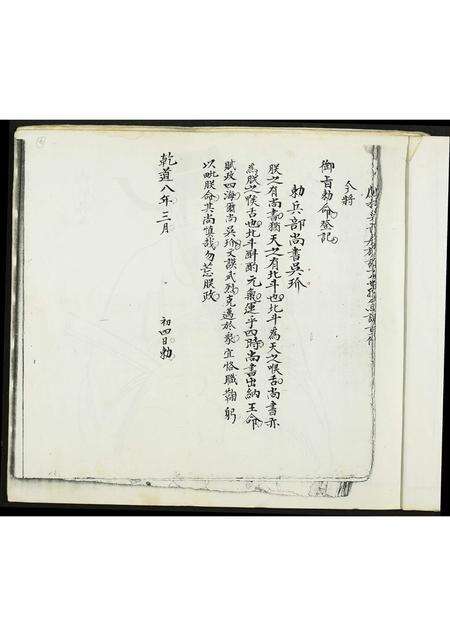 今将
御旨勅命登記
勅兵部尚書吳玠
朕之有尚書猶天之有北斗也北斗為天之喉舌尚書亦
為朕之喉舌也北斗斟酌元氣運乎四時尚書出納王命
賦政四海爾尚吳玠文謨武烈克邁於衆宜恪職鞠躬
以毗朕命其尚慎哉勿忘朕政
乾道八年三月
初四日勅